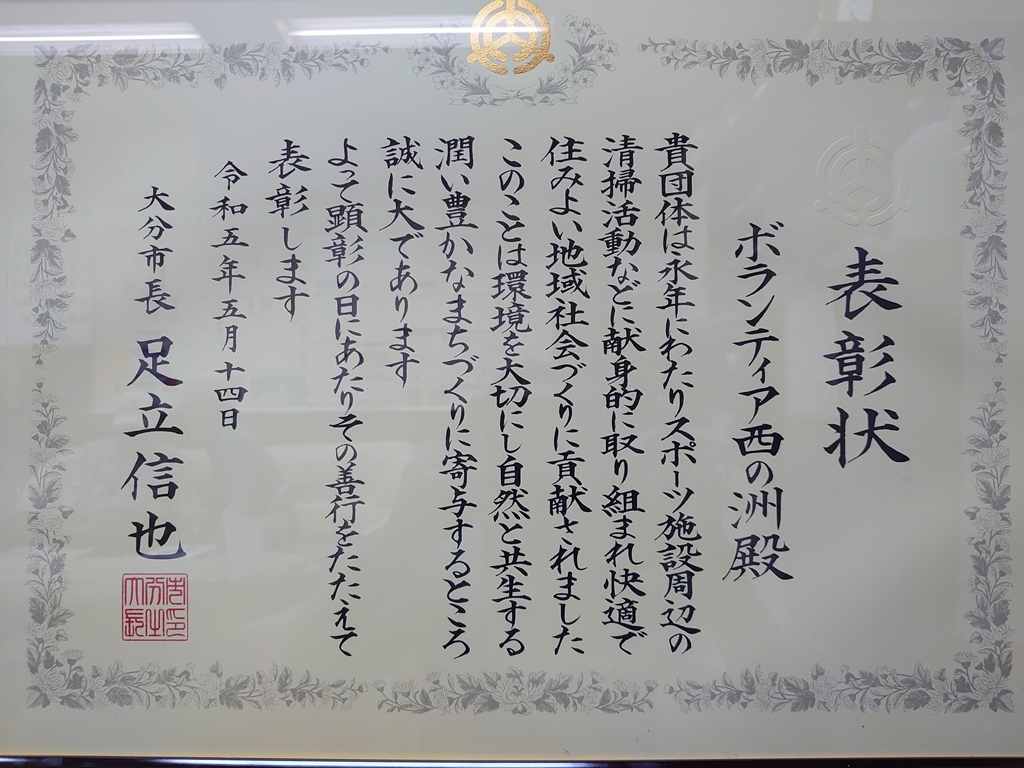 表彰状
ボランティア西の洲殿
貴団体は永年にわたりスポーツ施設周辺の
清掃活動などに献身的に取り組まれ快適で
住みよい地域社会づくりに貢献されました
このことは環境を大切にし自然と共生する
潤い豊かなまちづくりに寄与するところ
誠に大であります
よって顕彰の日にあたりその善行をたたえて
表彰します
令和五年五月十四日
大分市長 足立信也